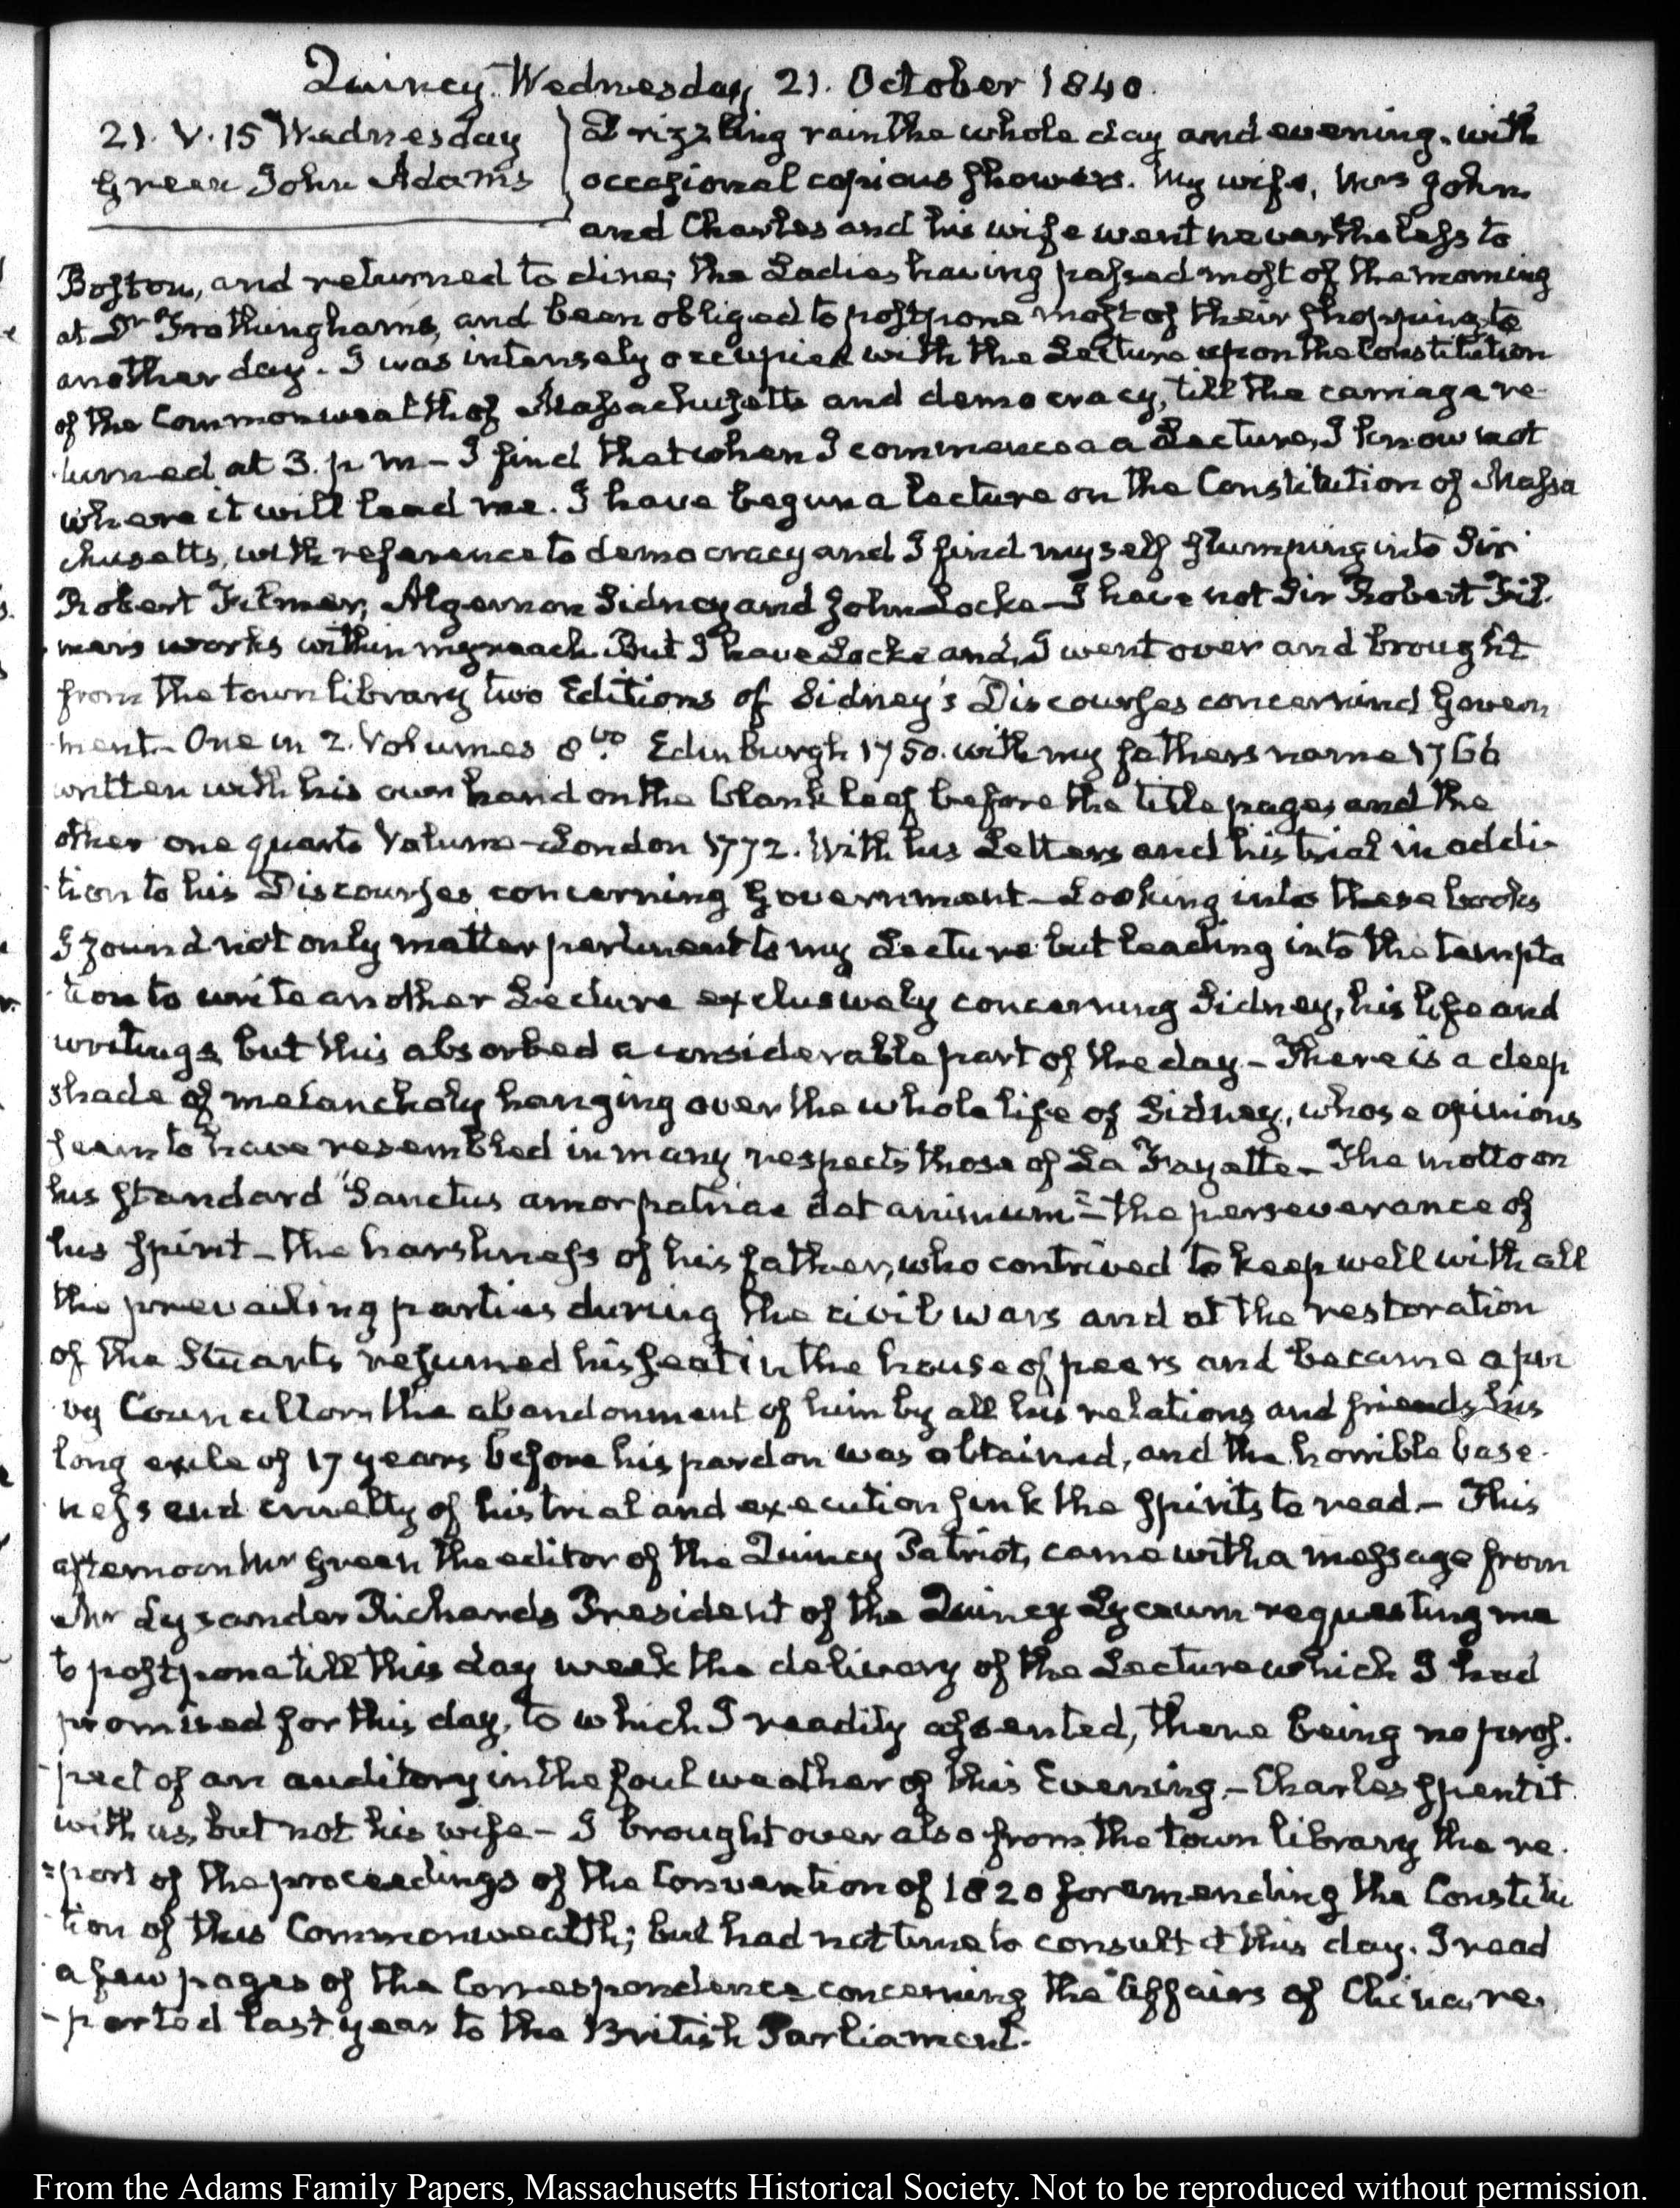 Quincy. Wednesday 21. October 1840.
21. V. 15 Wednesday
Green John Adams
Drizzling rain the whole day and evening, with
occasional copious showers. My wife, Mrs John
and Charles and his wife went nevertheless to
Boston, and returned to dine; the Ladies having passed most of the morning
at Dr Frothingham's, and been obliged to postpone most of their shopping to
another day. I was intensely occupied with the Lecture upon the Constitution
of the Commonwealth of Massachusetts and democracy, till the carriage re-
turned at 3. p m - I find that when I commence a Lecture, I know not
where it will lead me. I have begun a lecture on the Constitution of Massa
chusetts, with reference to democracy and I find myself slumping into Sir
Robert Filmer, Algernon Sidney and John Locke - I have not Sir Robert Fil-
mers works within my reach. But I have Locke and, I went over and brought
from the town library two Editions of Sidney's Discourses concernind Govern
ment - One in 2. Volumes 8vo. Edinburgh 1750. with my fathers name 1766
written with his own hand on the blank leaf before the title pages, and the
other one quarto Volume - London 1772. With his Letters and his trial in addi-
tion to his Discourses concerning Government - Looking into these books
I found not only matter pertinent to my Lecture but leading into the tempta
tion to write another Lecture exclusively concerning Sidney, his life and
writings, but this absorbed a considerable part of the day - There is a deep
shade of melancholy hanging over the whole life of Sidney, whose opinions
seem to have resembled in many respects those of La Fayette - The motto on
his standard "Sanctus amor patriae dat animum" - the perseverance of
his spirit - the harshness of his father, who contrived to keep well with all
the prevailing parties during the civil wars and at the restoration
of the Stuarts resumed his seat in the house of peers and became a pri
vy Councillor, the abandonment of him by all his relations and friends, his
long exile of 17 years before his pardon was obtained, and the horrible base-
ness and cruelty of his trial and execution sink the spirits to read. - This
afternoon Mr Green the editor of the Quincy Patriot, came with a message from
Mr Lysander Richards President of the Quincy Lyceum requesting me
to postpone till this day week the delivery of the Lecture which I had
promised for this day, to which I readily assented, there being no pros-
pect of an auditory in the foul weather of this Evening. - Charles spent it
with us, but not his wife - I brought over also from the town library the re-
=port of the proceedings of the Convention of 1820 for emending the Constitu
tion of this Commonwealth; but had not time to consult it this day. I read
a few pages of the Correspondence concerning the affairs of China, re-
-ported last year to the British Parliament.
From the Adams Family Papers, Massachusetts Historical Society. Not to be reproduced without permission.